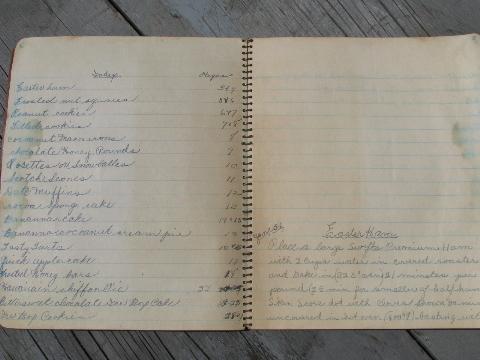 Index Pages
Easter ham
Frosted nut squares 5&6
Peanut cookies 6&7
Filled cookies 7&8
cocoanut Macaroons 8
chocolate Honey Rounds 9
Rosettes or Snowballs 10
Scotch Scones 11
Date Muffins 12
cocoa Sponge cake 12
Bananna cake
Bananna cocoanut cream pie
Tasty Tarts
Quick apple cake 17
Frosted Honey bars 18
Hawaiian chiffon Pie 52
Bittersweet chocolate Dew Drop Cake
Dew Drop Cookies
Easter Ham
Place a large Swifts Premium Ham
with 2 cups water in covered roaster
and bake in (325°) minutes per
pound (25 min for smaller or half ham
Score dot with cloves
uncovered in hot oven (400°) basting